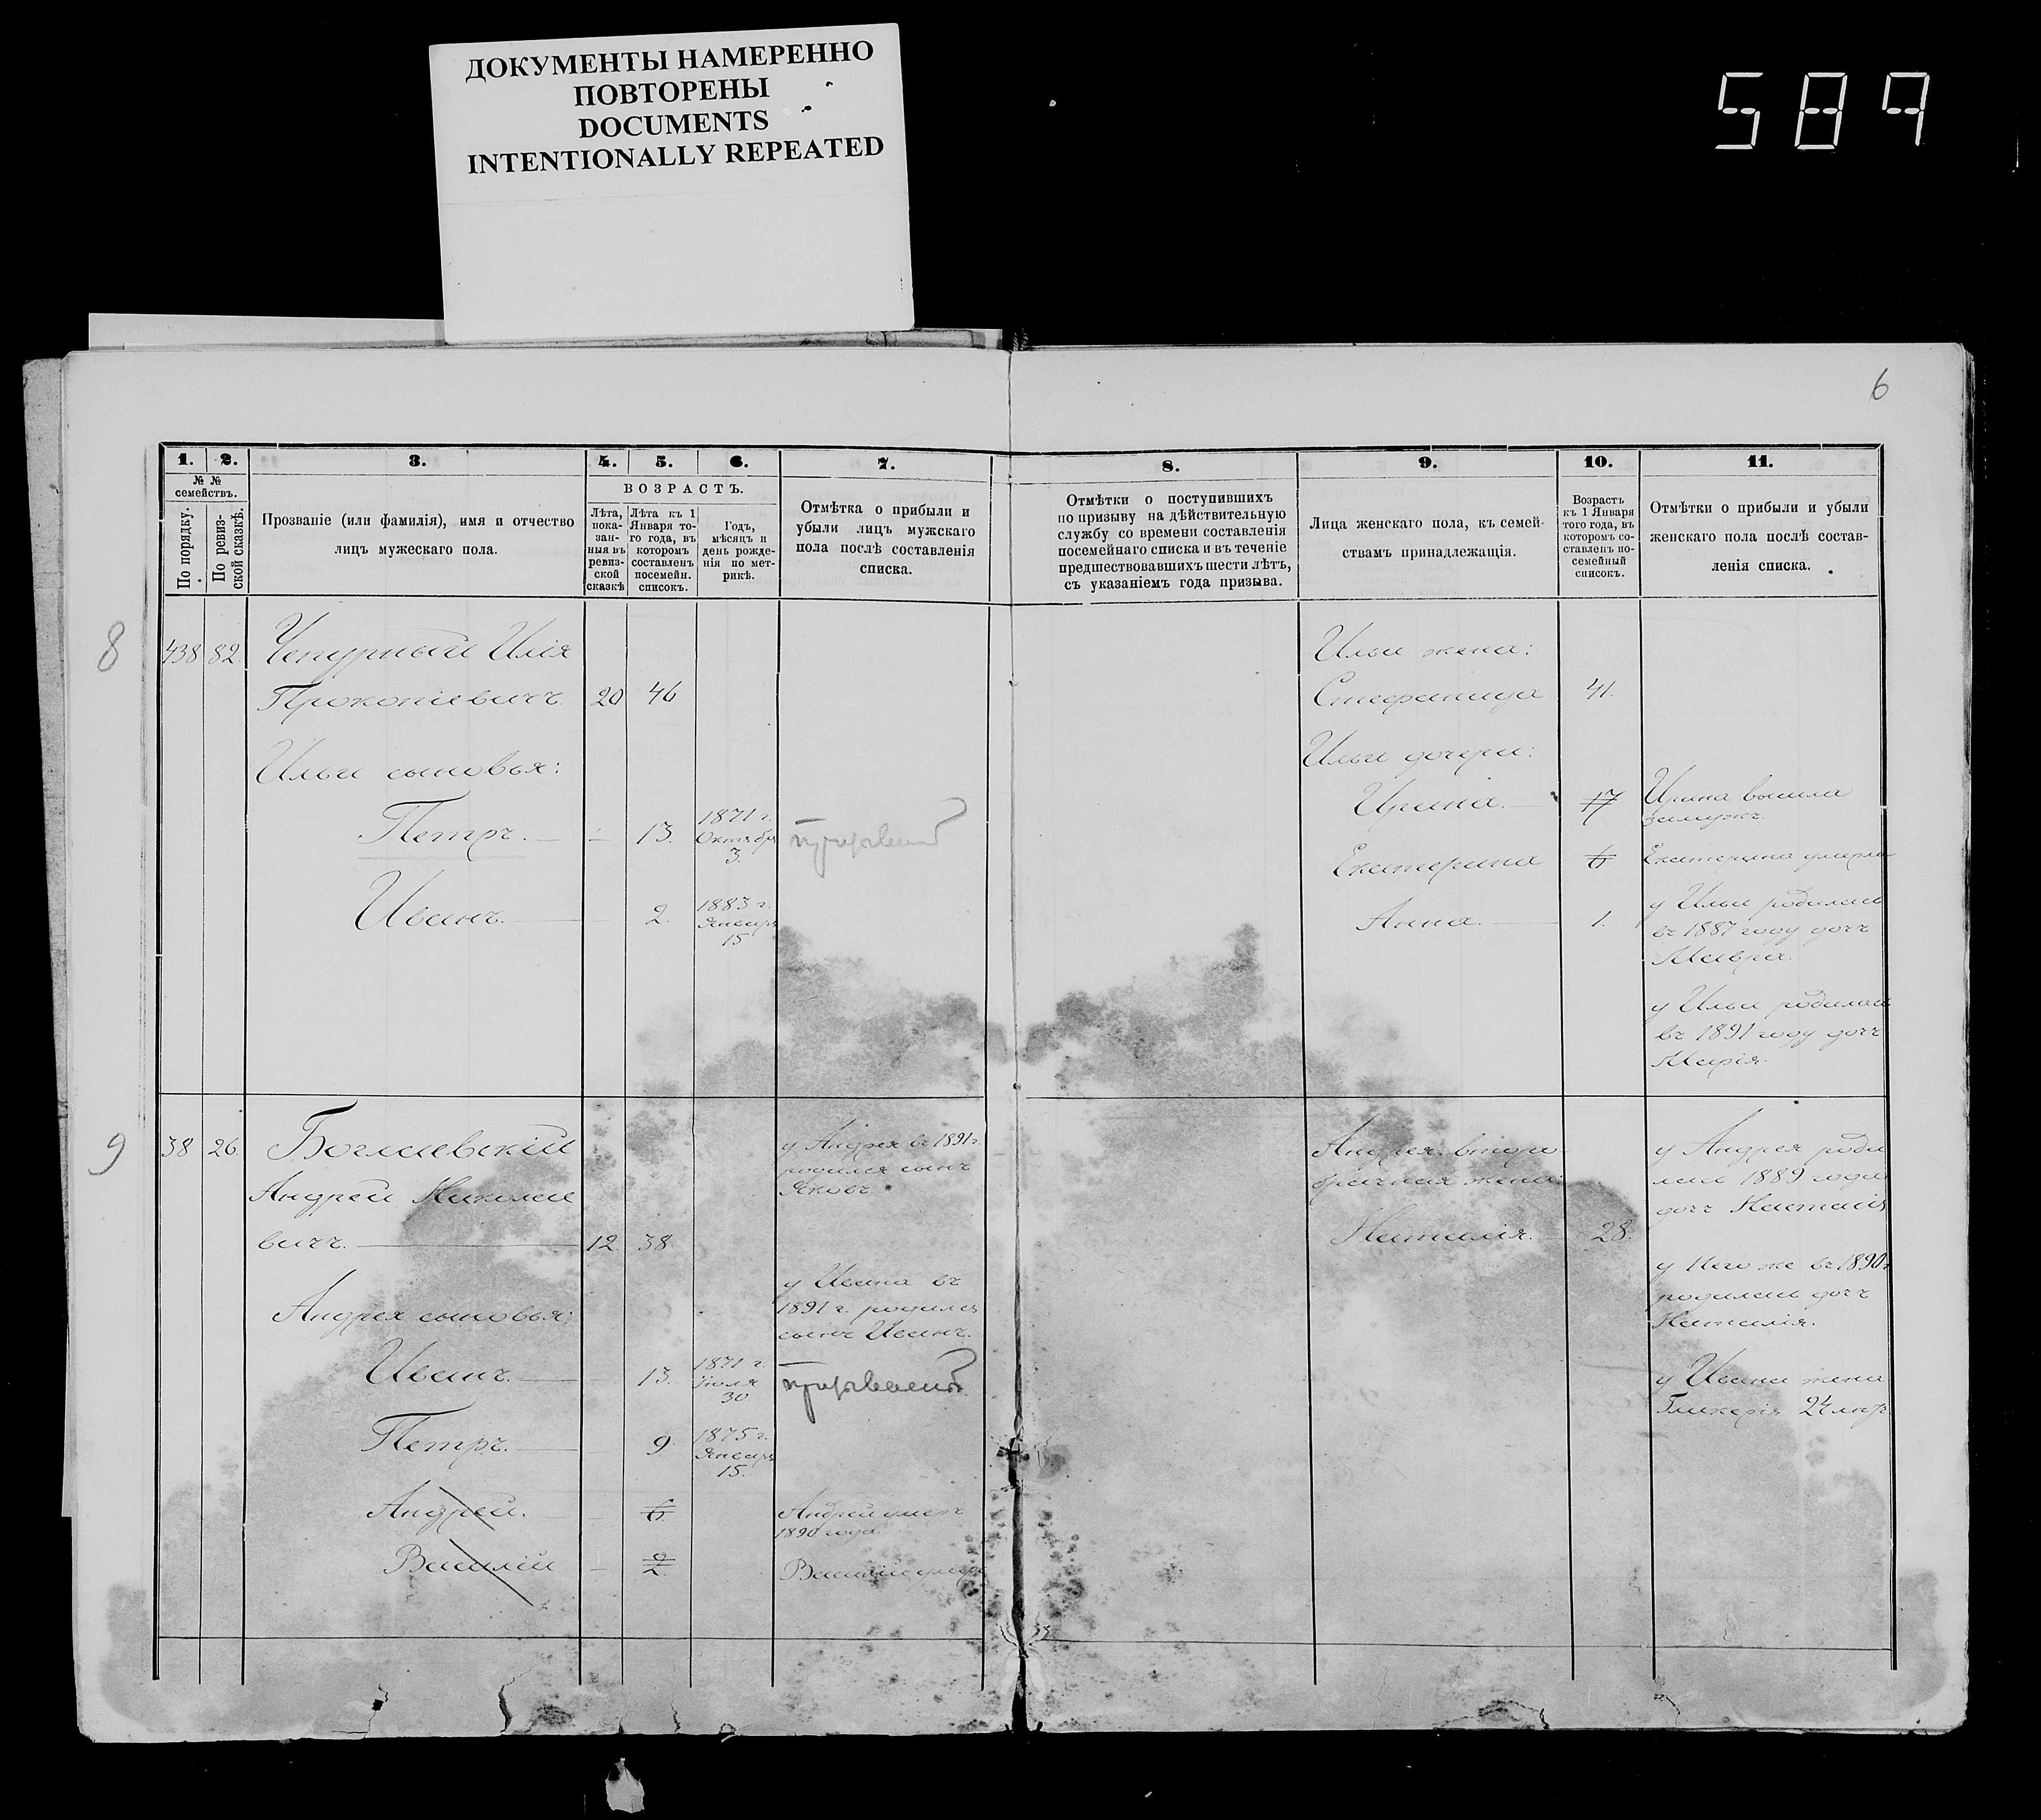 ДОКУМЕНТЫ НАМЕРЕННО
ПОВТОРЕНЫ
DOCUMENTS
INTENTIONALLY REPEATED
589
6
1.
2.
3.
4.
5.
6.
7.
8.
9.
10.
11.
№ №
семействъ.
По порядку.
По ревиз-
ской сказкѣ.
Прозваніе (или фамилія), имя и отчество
лицъ мужескаго пола.
ВОЗРАСТЪ.
Лѣта,
пока-
зан-
ныя въ
ревиз-
ской
сказкѣ
Лѣта къ 1
Января то-
го года, въ
которомъ
составленъ
посемейн.
списокъ.
Годъ,
мѣсяцъ и
день рожде-
нія по мет-
рикѣ.
Отмѣтка о прибыли и
убыли лицъ мужскаго
пола послѣ составленія
списка.
Отмѣтки о поступившихъ
по призыву на дѣйствительную
службу со времени составленія
посемейнаго списка и въ теченіе
предшествовавшихъ шести лѣтъ,
съ указаніемъ года призыва.
Лица женскаго пола, къ семей-
ствамъ принадлежащія.
Возрастъ
къ 1 Января
того года, въ
которомъ со-
ставленъ по-
семейный
списокъ.
Отмѣтки о прибыли и убыли
женскаго пола послѣ состав-
ленія списка.
8
438 82. Чепурный Илія
Прокопіевичъ. 20 46
Ильи сыновья:
Петръ. 13. 1871 г.
Октября
3.
Иванъ. 2. 1883 г.
Января
15
Ильи жена:
Стефанида 41.
Ильи дочери:
Ирина. 17
Ирина вышла
замужъ.
Екатерина 6
Екатерина умерла
Анна. 1.
у Ильи родилась
въ 1887 году дочь
Мавра.
у Ильи родилась
въ 1891 году дочь
Марія.
9
38 26. Боглаевскій
Андрей Николае
вичъ. 12. 38.
у Андрея въ 1891 г.
родился сынъ
Яковъ.
Андрея сыновья:
у Ивана въ
1891 г. родился
сынъ Иванъ.
Иванъ. 13. 1871 г.
Іюля
30
Петръ. 9. 1875 г.
Января
15.
Андрей. 6.
Андрей умеръ
1890 года.
Василій 2.
Василій умеръ
Андрея второ
брачная жена:
Наталія. 28.
у Андрея роди
лась 1889 года
дочь Наталія
у него же въ 1890 г
родилась дочь
Наталія.
у Ивана жена
Гликерія 24 лѣтъ